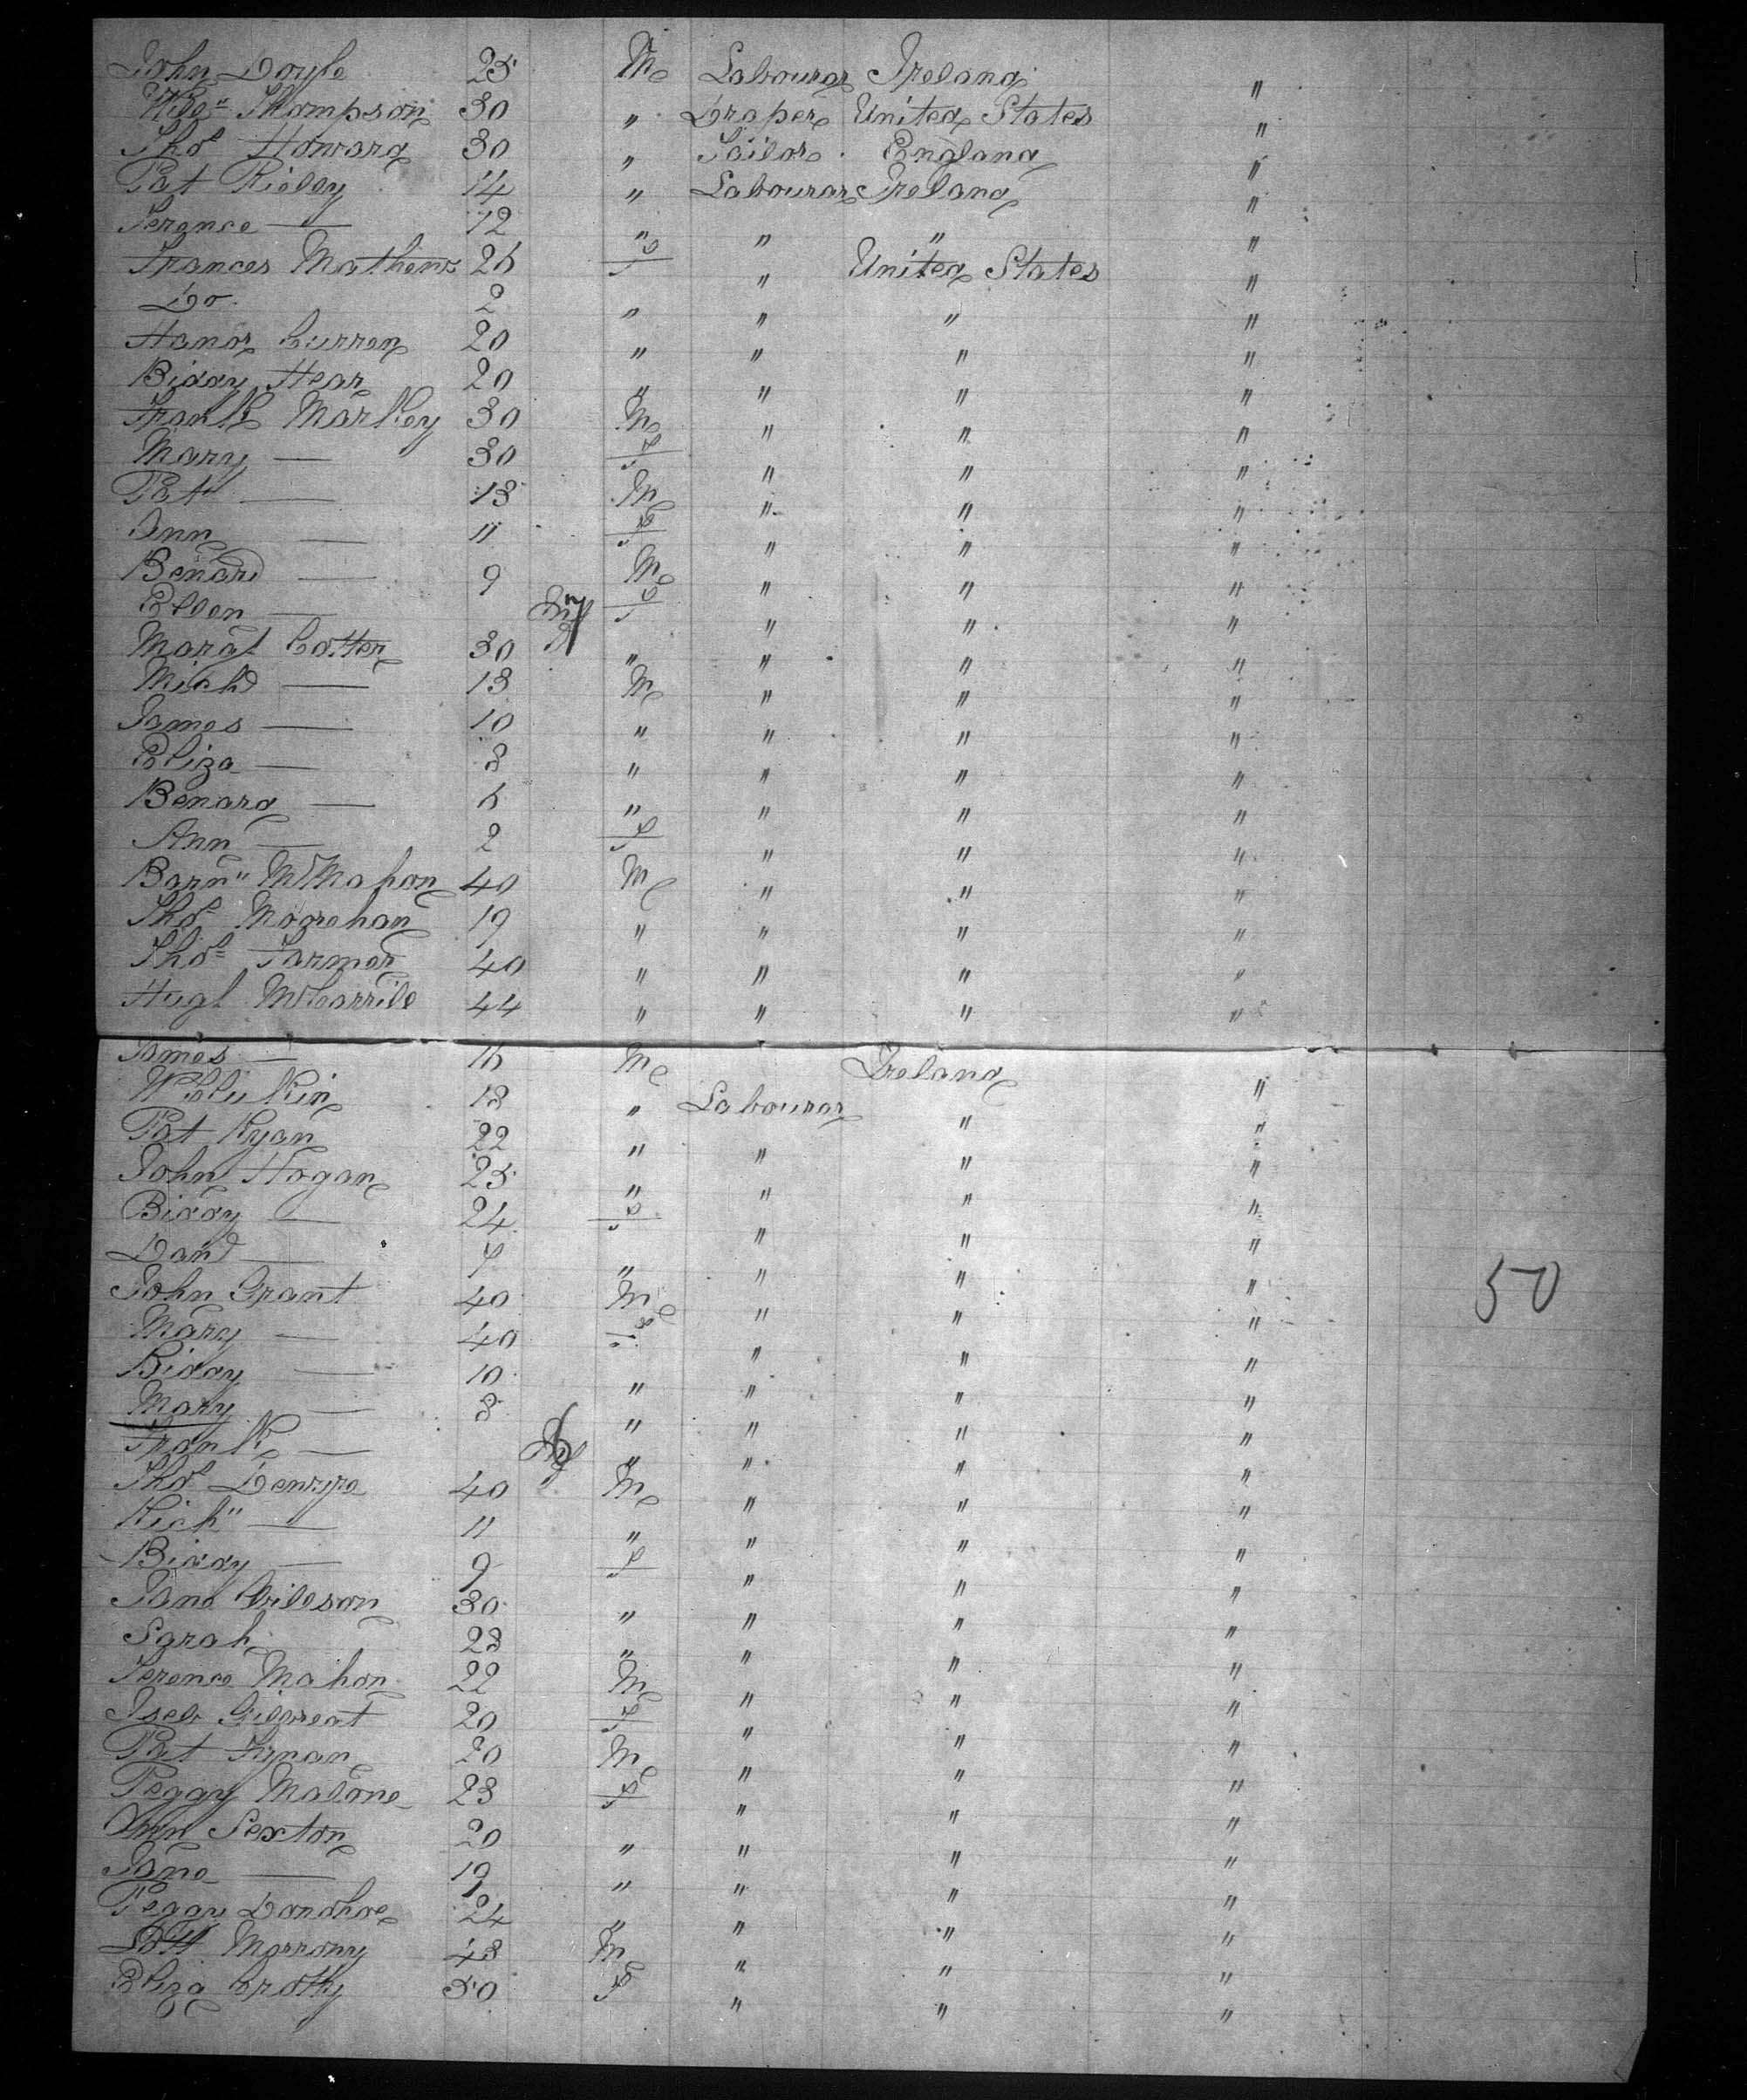 John Doyle 25 M Labourar Ireland "
Wm Thompson 30 " Draper United States "
Thos Howard 30 " Tailor England "
Pat Rieley 14 " Labourar Ireland "
Terence — 12 " " " "
Frances Mathews 26 F " United States "
Do 2 " " " "
Hanor Curren 20 " " " "
Biddy Hear 20 " " " "
Frank Markey 30 M " " "
Mary — 30 F " " "
Pat — 13 M " " "
Ann — 11 F " " "
Benard — 9 M " " "
Ellen — Inf F " " "
Margt Cotter 30 " " " "
Michd — 13 M " " "
James — 10 " " " "
Eliza — 8 " " " "
Benard — 6 " " " "
Ann — 2 F " " "
Barny McMahon 40 M " " "
Thos Moorehan 19 " " " "
Thos Farmer 40 " " " "
Hugh McCarrile 44 " " " "
James — 16 M Ireland "
W 18 " Labourar " "
Pat Ryan 22 " " " "
John Hogan 25 " " " "
Biddy — 24 F " " "
Dand — 4 " " " "
John Grant 40 M " " "
Mary — 40 F " " "
Biddy — 10 " " " "
Mary — 8 " " " "
Frank — Inf " " " "
Thos 40 M " " "
Rich" — 11 " " " "
Biddy — 9 F " " "
Jane Gileson 30 " " " "
Sarah 28 " " " "
Terence Mahon 22 M " " "
Gilgreat 20 F " " "
Pat 20 M " " "
Peggy Malone 23 F " " "
Ann Sexton 20 " " " "
Jane — 19 " " " "
Peggy Donohoe 24 " " " "
Morrony 43 M " " "
Eliza Crotty 50 F " " "
50